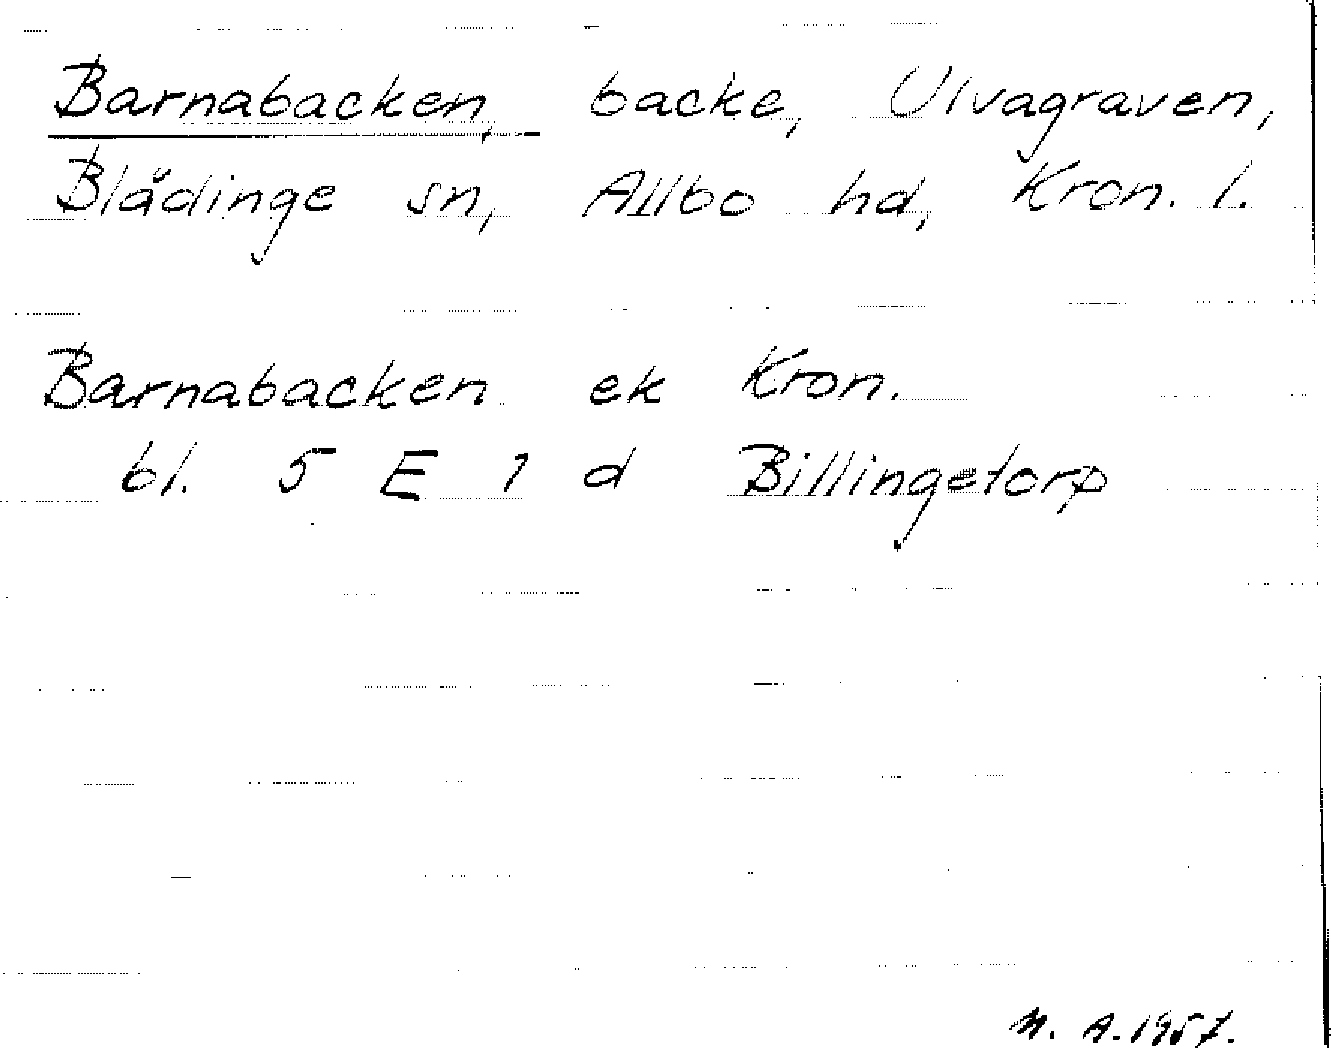 Barnabacken, backe, Ulvagraven,
Blädinge sn, Allbo hd, Kron. l.
Barnabacken ek Kron.
bl. 5 E 1 d Billingetorp
N. A. 1957.